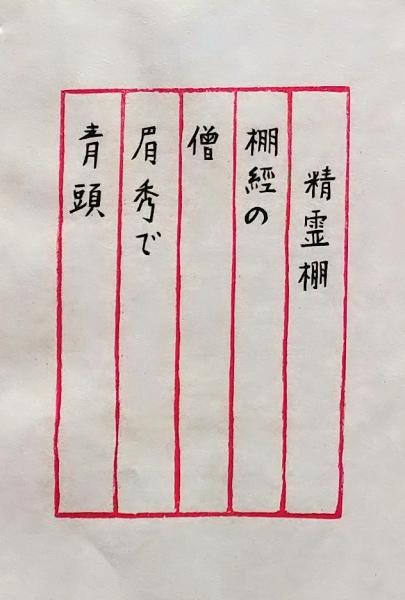 精霊棚
棚經の
僧
眉秀で
青頭